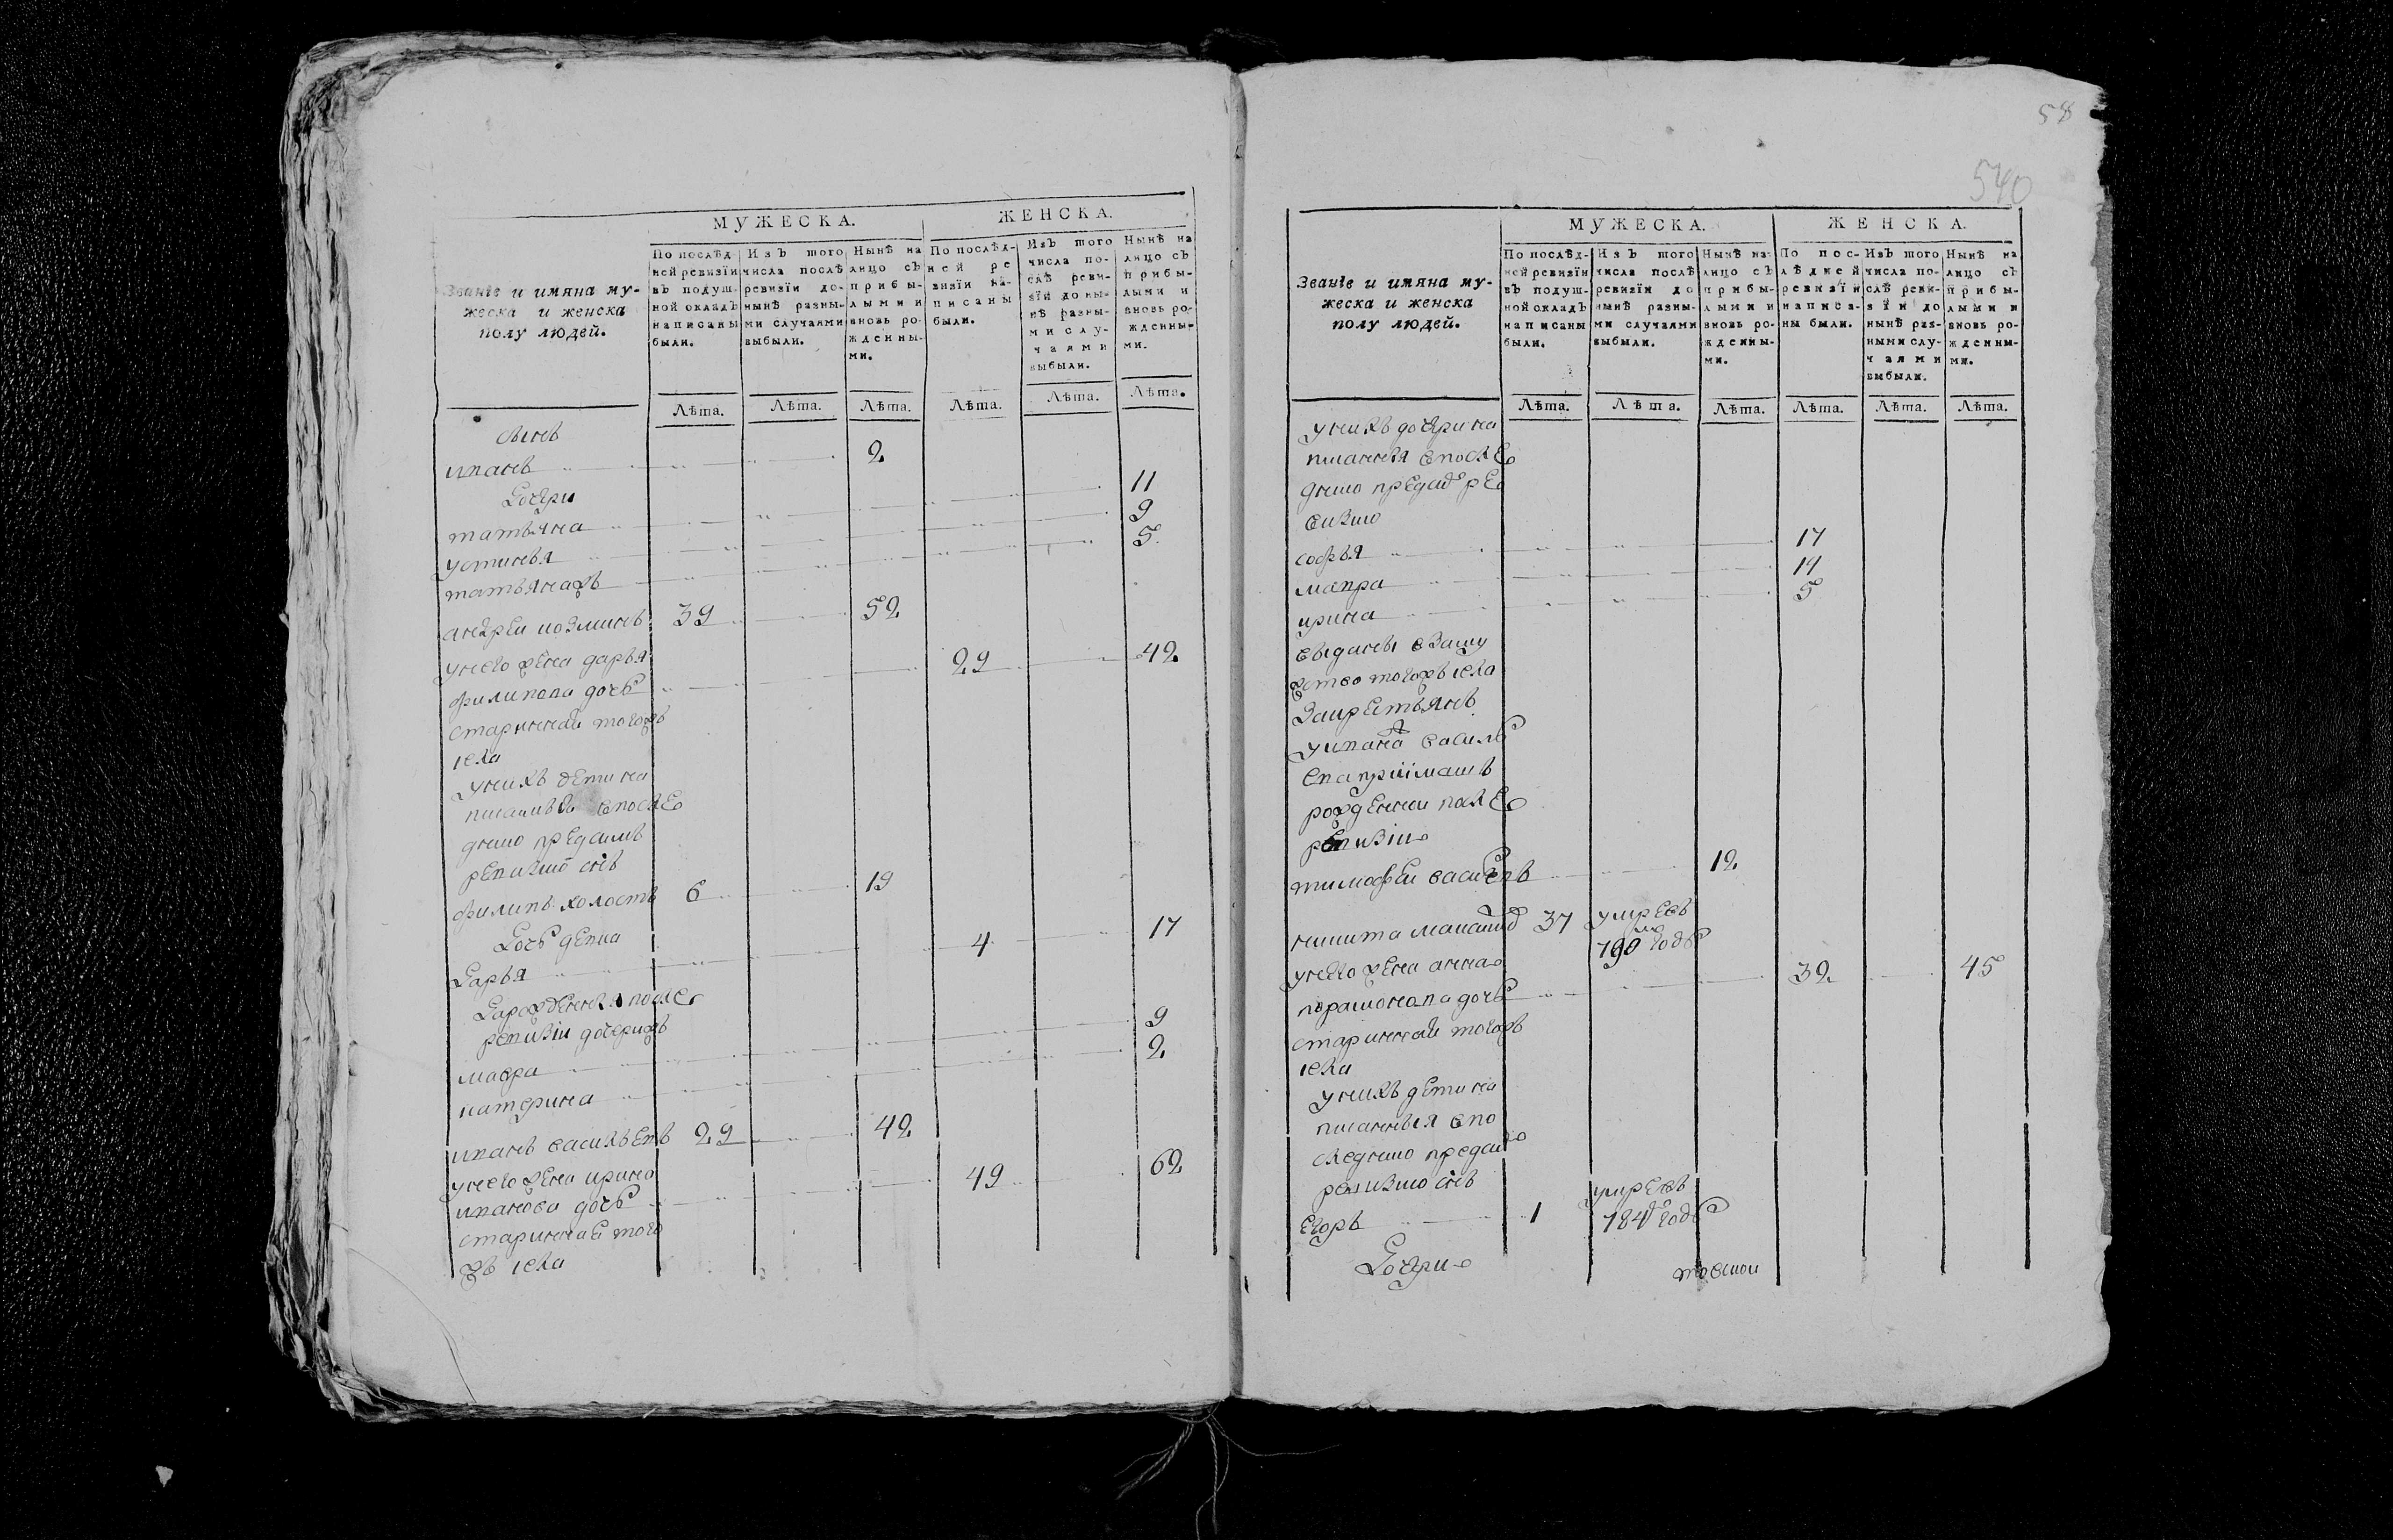 МУЖЕСКА.
ЖЕНСКА.
Званіе и имяна му-
жеска и женска
полу людей.
По послѣд-
ней ревизіи
въ подуш-
ной окладъ
написаны
были.
Изъ того
числа послѣ
ревизіи до-
нынѣ разны-
ми случаями
выбыли.
Нынѣ на
лицо съ
прибы-
лыми и
вновь ро-
жденны-
ми.
По послѣд-
ней ре
визіи на-
писаны
были.
Изъ того
числа по-
слѣ реви-
зіи до ны-
нѣ разны-
ми слу-
чаями
выбыли.
Нынѣ на
лицо съ
прибы-
лыми и
вновь ро-
жденны-
ми.
Лѣта. Лѣта. Лѣта. Лѣта. Лѣта. Лѣта.
сынъ
иванъ 2
дочери
татьяна 11
устинья 9
татьянажъ 5
андреи козминъ 39 52
унего жена дарья 29 42
филипова дочь
стариннаи тогожъ
села
унихъ дети на
писаныя впосле
днею предъ симъ
ревизию снъ
филипъ холостъ 6 19
дочь девка
дарья 4 17
дарожденныя после
ревизіи дочерижъ
мавра 9
катерина 2
иванъ васильевъ 29 42
унего жена ирина 49 62
иванова дочь
стариннае того
жъ села
58
540
МУЖЕСКА.
ЖЕНСКА.
Званіе и имяна му-
жеска и женска
полу людей.
По послѣд-
ней ревизіи
въ подуш-
ной окладъ
написаны
были.
Изъ того
числа послѣ
ревизіи до
нынѣ разны-
ми случаями
выбыли.
Нынѣ на
лицо съ
прибы-
лыми и
вновь ро-
жденны-
ми.
По пос-
лѣдней
ревизіи
написа-
ны были.
Изъ того
числа по-
слѣ реви-
зіи до
нынѣ раз-
ными слу-
чаями
выбыли.
Нынѣ на
лицо съ
прибы-
лыми и
вновь ро-
жденны-
ми.
Лѣта. Лѣта. Лѣта. Лѣта. Лѣта. Лѣта.
унихъ дочери на
писанныя впосле
днею предъ ре
визию
софья 17
мавра 14
ирина 5
выданы взаму
жство тогожъ села
закрестьянъ
уивана василь
ева приимашъ
рожденнои после
ревизіи
тимофеи васильевъ 12
никита 37 умревъ
790 годъ
унего жена анна 32 45
парамонова дочь
стариннаи тогожъ
села
унихъ дети на
писанныя впо
следнею предъ
ревизию снъ
егоръ 1 умревъ
784 годъ
дочери